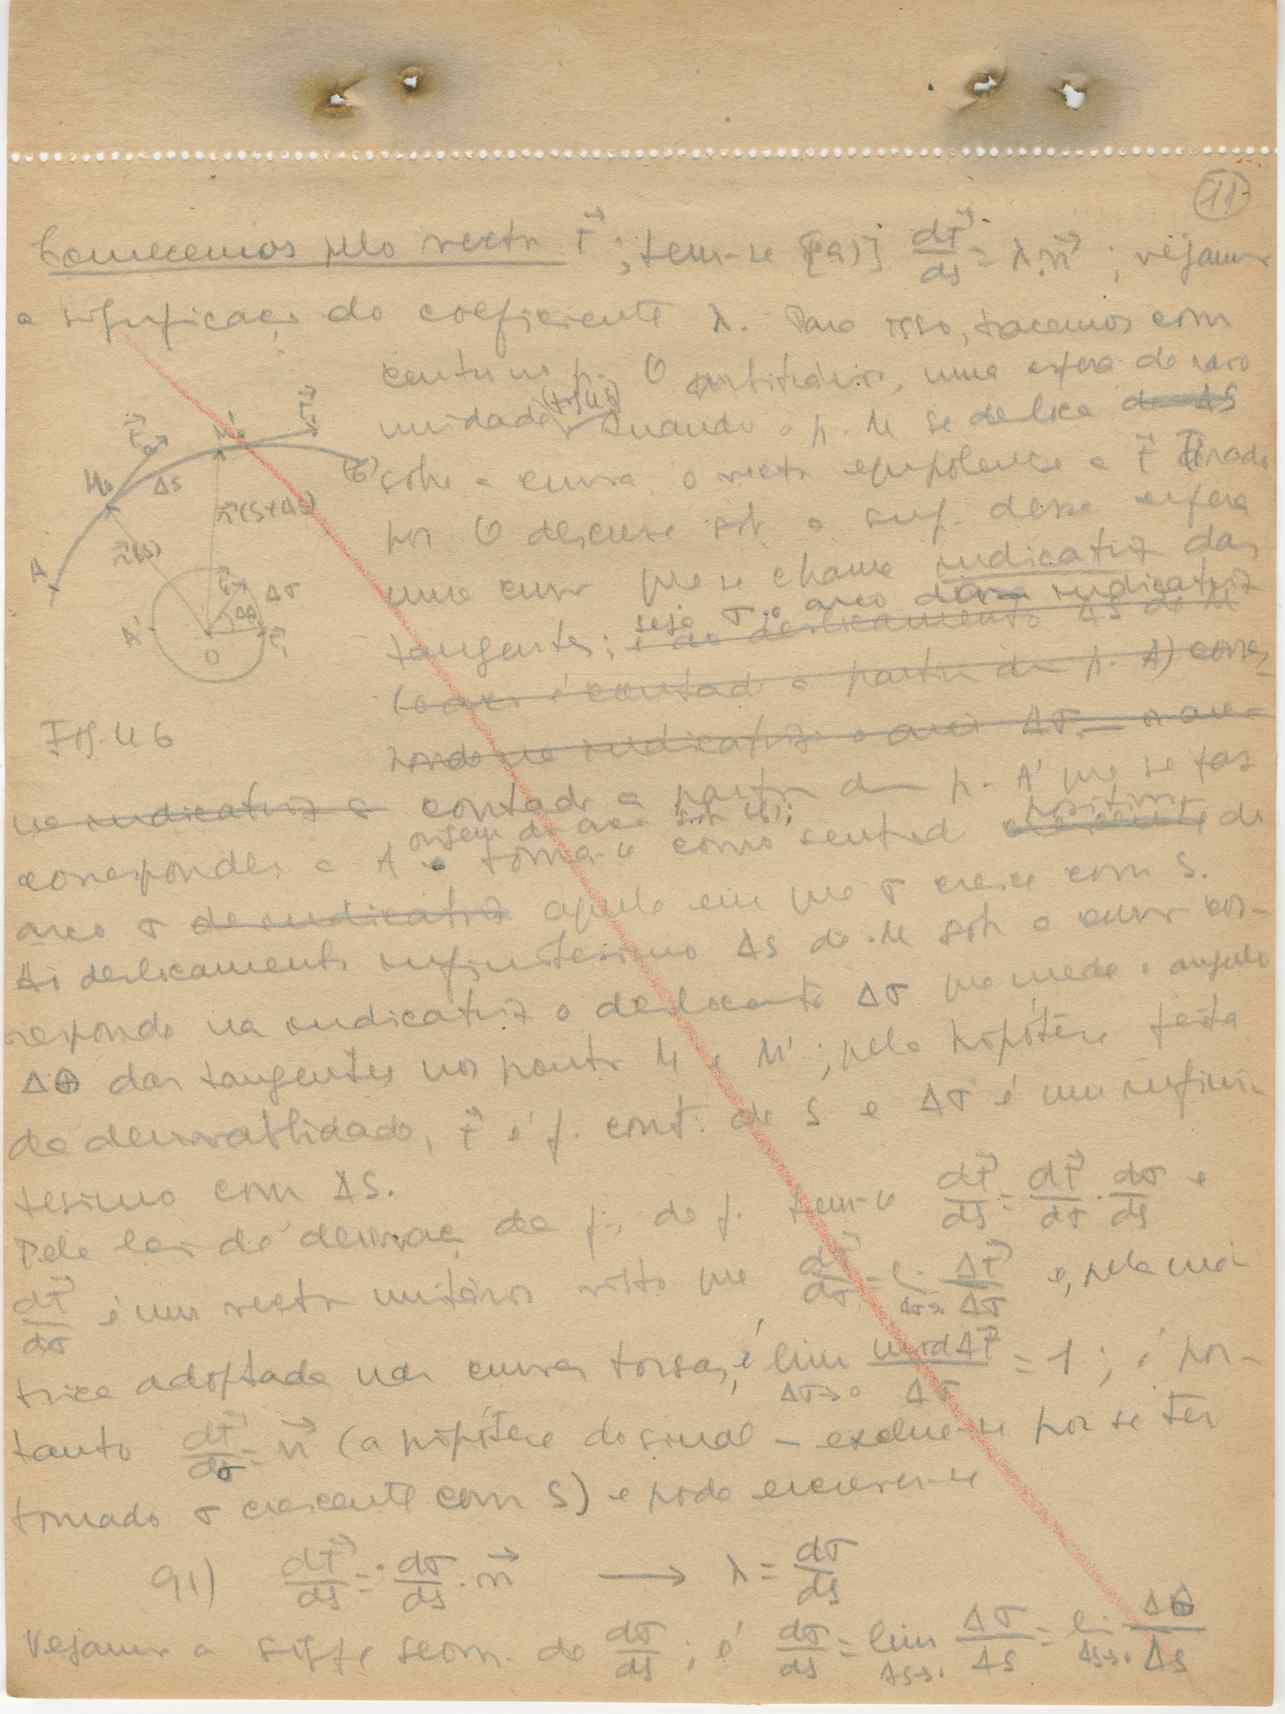 11
Comecemos pelo vector t⃗ ; tem-se [ ] dt⃗/ds = λ.n⃗ ; vejamos
a significação do coeficiente λ. Para isso, tracemos com
centro no p. O arbitrário, uma esfera de raio
unidade (Fig. 46) Quando o p. M se desloca de ΔS
sobre a curva o vector equipolente a t⃗ tirado
por O descreve sob. a sup. dessa esfera
uma curva que se chama indicatriz das
tangentes; seja σ o arco dessa indicatriz
e ao deslocamento ΔS de M
(o arco é contado a partir dum p. A) corres-
ponde na indicatriz o arco Δσ
na indicatriz contado a partir dum p. A' que se faz
origem do arco sob.
positivo
corresponder a A e toma-se como sentido do
arco σ da indicatriz aquele em que σ cresce com s.
Ao deslocamento infinitésimo Δs de M sob a curva cor-
responde na indicatriz o deslocamento Δσ que mede o angulo
Δθ das tangentes nos pontos M e M' ; pela hipótese feita
da derivabilidade, t⃗ é f. cont. de s e Δσ é um infini-
tésimo com Δs.
Pela lei de derivação da f. de f. tem-se dt⃗/ds = dt⃗/dσ . dσ/ds e
dt⃗/dσ é um vector unitário visto que dt⃗/dσ = li. Δσ→0 Δt⃗/Δσ e, pela mé-
trica adoptada nas curvas torsas, é lim Δσ→0 mod Δt⃗/Δσ = 1 ; é por-
tanto dt⃗/dσ = n⃗ (a hipótese do sinal – exclue-se por se ter
tomado σ crescente com s) e pode escrever-se
91) dt⃗/ds = dσ/ds . n⃗ ⟶ λ = dσ/ds
Vejamos a sigf. geom. de dσ/ds ; é dσ/ds = lim Δs→0 Δσ/Δs = li. Δs→0 Δθ/Δs
A
M₀
Δs
M'₀
t⃗₀
t⃗'
(C)
r⃗(s)
r⃗(s+Δs)
A'
O
Δθ
Δσ
t⃗₁
Fig. 46